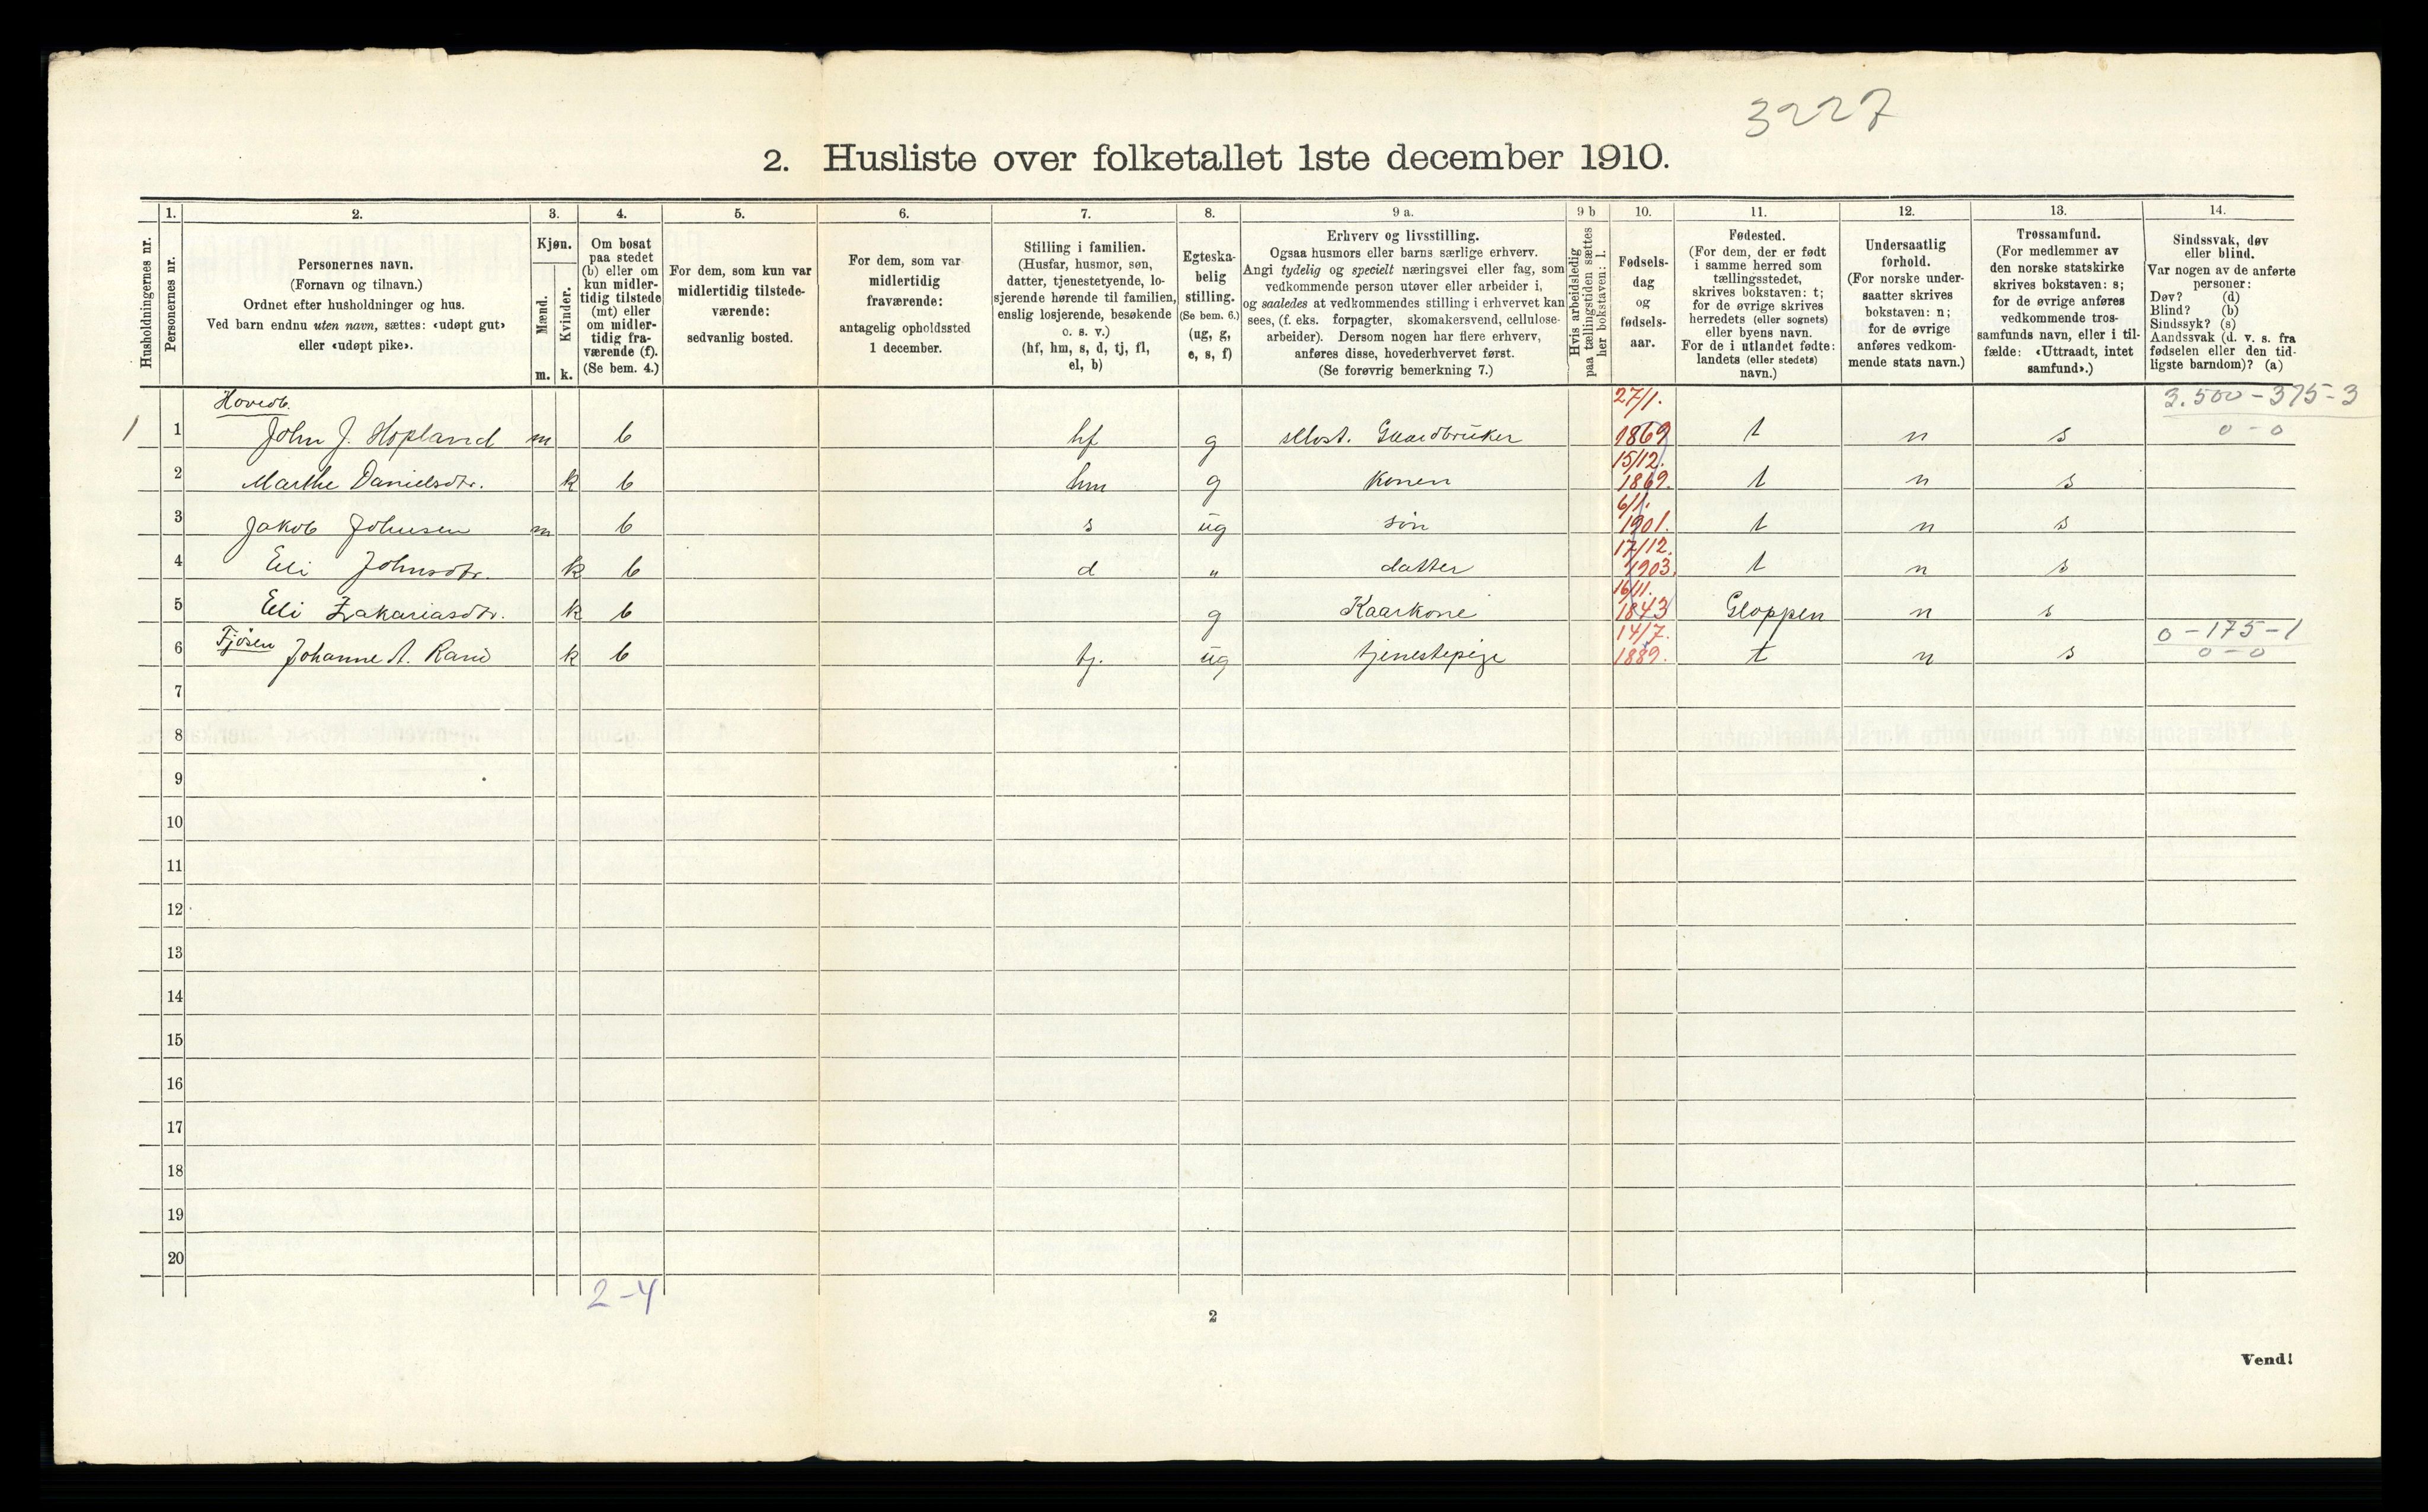 3227
2. Husliste over folketallet 1ste december 1910.
1. 2. 3. 4. 5. 6. 7. 8. 9 a. 9 b 10. 11. 12. 13. 14.
Husholdningernes nr.
Personernes nr.
Personernes navn.
(Fornavn og tilnavn.)
Ordnet efter husholdninger og hus.
Ved barn endnu uten navn, sættes: «udøpt gut»
eller «udøpt pike».
Kjøn.
Mænd.
Kvinder.
m. k.
Om bosat
paa stedet
(b) eller om
kun midler-
tidig tilstede
(mt) eller
om midler-
tidig fra-
værende (f).
(Se bem. 4.)
For dem, som kun var
midlertidig tilstede-
værende:
sedvanlig bosted.
For dem, som var
midlertidig
fraværende:
antagelig opholdssted
1 december.
Stilling i familien.
(Husfar, husmor, søn,
datter, tjenestetyende, lo-
sjerende hørende til familien,
enslig losjerende, besøkende
o. s. v.)
(hf, hm, s, d, tj, fl,
el, b)
Egteska-
belig
stilling.
(Se bem. 6.)
(ug, g,
e, s, f)
Erhverv og livsstilling.
Ogsaa husmors eller barns særlige erhverv.
Angi tydelig og specielt næringsvei eller fag, som
vedkommende person utøver eller arbeider i,
og saaledes at vedkommendes stilling i erhvervet kan
sees, (f. eks. forpagter, skomakersvend, cellulose-
arbeider). Dersom nogen har flere erhverv,
anføres disse, hovederhvervet først.
(Se forøvrig bemerkning 7.)
Hvis arbeidsledig
paa tællingstiden sættes
her bokstaven: l.
Fødsels-
dag
og
fødsels-
aar.
Fødested.
(For dem, der er født
i samme herred som
tællingsstedet,
skrives bokstaven: t;
for de øvrige skrives
herredets (eller sognets)
eller byens navn.
For de i utlandet fødte:
landets (eller stedets)
navn.)
Undersaatlig
forhold.
(For norske under-
saatter skrives
bokstaven: n;
for de øvrige
anføres vedkom-
mende stats navn.)
Trossamfund.
(For medlemmer av
den norske statskirke
skrives bokstaven: s;
for de øvrige anføres
vedkommende tros-
samfunds navn, eller i til-
fælde: «Uttraadt, intet
samfund».)
Sindssvak, døv
eller blind.
Var nogen av de anførte
personer:
Døv? (d)
Blind? (b)
Sindssyk? (s)
Aandssvak (d. v. s. fra
fødselen eller den tid-
ligste barndom)? (a)
Hovedb. 27/1. 3.500-375-3
1 1 John J. Hopland m b hf g selvst. Gaardbruker 1869 t n s 0-0
15/12.
2 Marthe Danielsdtr. k b hm g Konen 1869. t n s
6/1.
3 Jakob Johnsen m b s ug søn 1901. t n s
17/12.
4 Eli Johnsdtr. k b d " datter 1903. t n s
16/11.
5 Eli Zakariasdtr. k b g Kaarkone 1843 Gloppen n s
Fjøsen 14/7. 0-175-1
6 Johanne A. Rand k b tj. ug tjenestepige 1889. t n s 0-0
7
8
9
10
11
12
13
14
15
16
17
18
19
20
2-4
2
Vend!